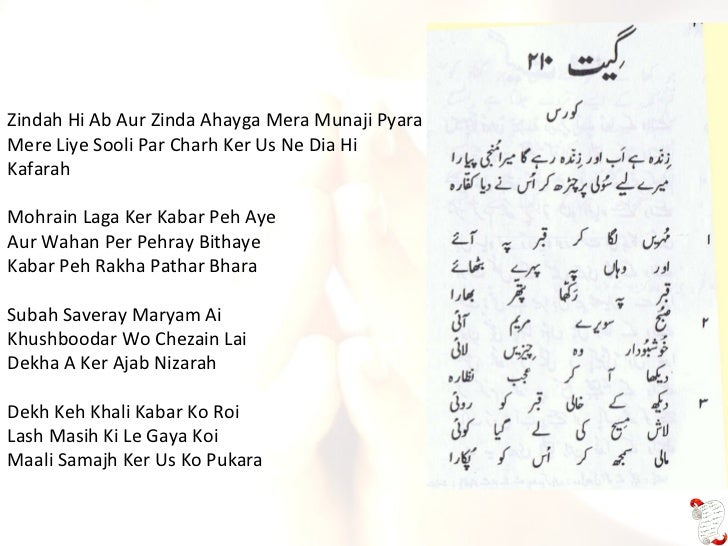 Zindah Hi Ab Aur Zinda Ahayga Mera Munaji Pyara
Mere Liye Sooli Par Charh Ker Us Ne Dia Hi
Kafarah
Mohrain Laga Ker Kabar Peh Aye
Aur Wahan Per Pehray Bithaye
Kabar Peh Rakha Pathar Bhara
Subah Saveray Maryam Ai
Khushboodar Wo Chezain Lai
Dekha A Ker Ajab Nizarah
Dekh Keh Khali Kabar Ko Roi
Lash Masih Ki Le Gaya Koi
Maali Samajh Ker Us Ko Pukara
گیت ۲۱۰
کورس
زِندہ ہے اَب اور زِندہ رہے گا میرا مُنجی پیارا
میرے لیے سُولی پر چڑھ کر اُس نے دیا کفّارہ
۱ مُہریں لگا کر قبر پہ آئے
اور وہاں پہ پہرے بٹھائے
قبر پہ رکھّا پتّھر بھارا
۲ صُبح سویرے مریم آئی
خُوشبُودار وہ چیزیں لائی
دیکھا آ کر عجب نظارہ
۳ دیکھ کے خالی قبر کو روئی
لاش مسیح کی لے گیا کوئی
مالی سمجھ کر اُس کو پُکارا